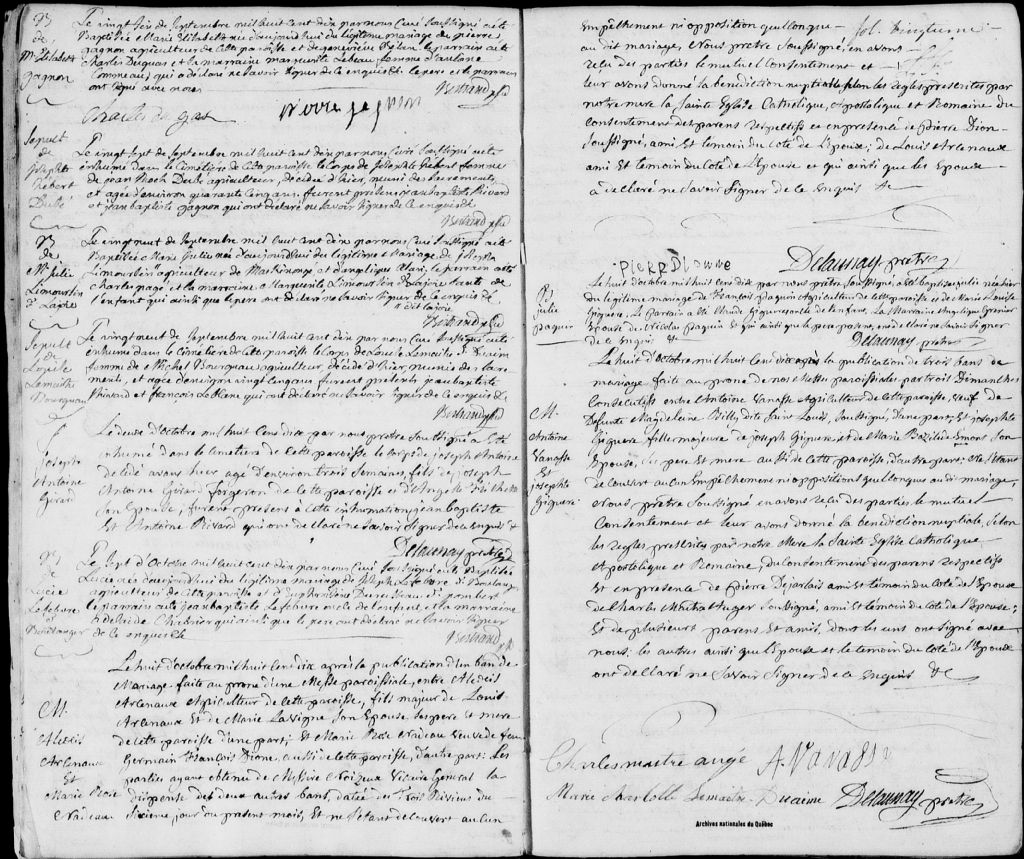 B
de
M. Elisabeth
gagnon
Le vingt six de Septembre mil huit cent dix par nous Curé Soussigné a été
Baptisée Marie Elisabeth née d'aujourd'hui du légitime mariage de pierre
gagnon agriculteur de cette paroisse et de genevieve le parrain a été
Charles Dugas et la marraine marguerite Lebeau femme d'antoine
Comeau qui a déclaré ne savoir signer de ce enquis &c le pere et le parrain
ont signé avec nous
Bertrand ptre
Charles dugas
pierre gagnon
Sepult
de
Josephte
hebert
Dubé
Le vingt sept de Septembre mil huit cent dix par nous Curé Soussigné a été
inhumé dans le Cimetière de cette paroisse le Corps de Josephte hebert femme
de jean Dubé agriculteur, décédée d'hier, munie des Sacrements,
et agée d'environ quarante cinq ans, furent présens jean baptiste Rivard
et jean baptiste gagnon qui ont déclaré ne savoir signer de ce enquis &c
Bertrand ptre
B
de
Me Julie
Limourtin
d. Lajoie
Le vingt neuf de Septembre mil huit cent dix par nous Curé Soussigné a été
Baptisée Marie Julie née d'aujourd'hui du légitime mariage de joseph
Limourtin agriculteur de Maskinongé et d'angelique Alari, le parrain a été
Charles pagé, et la marraine a Marguerite Limourtin d. Lajoie tante de
l'enfant qui ainsi que le pere ont déclaré ne savoir signer de ce enquis &c
dit lajoie
Bertrand ptre
Sepult
de
Louise
Lemaitre
Bourgnau
Le vingt neuf de Septembre mil huit cent dix par nous Curé Soussigné a été
inhumé dans le Cimetière de cette paroisse le Corps de Louise Lemaitre d. Ducim
femme de Michel Bourgnau agriculteur, décédée d'hier, munie des Sacre
ments, et agée d'environ vingt cinq ans furent présents jean baptiste
Rivard et françois qui ont déclaré ne savoir signer de ce enquis &c
Bertrand ptre
S
joseph
Antoine
Girard
Le deux d'octobre mil huit Cent dix par nous pretre Soussigné a Eté
inhumé dans le cemetiere de Cette paroisse le Corps de joseph Antoine
décédé avant hier agé d'environ trois Semaines, fils de joseph
Antoine Girard forgeron de cette paroisse et d'Angelle
Son Epouse, furent présens à cette inhumation jean baptiste
Et Antoine Rivard qui ont déclaré ne Savoir Signer de ce Enquis &c
Delaunay pretre
B
de
Lucie
Lefebvre
d.
Boulanger
Le Sept d'Octobre mil huit cent dix par nous Curé Soussigné a été Baptisée
Lucie née d'aujourd'hui du légitime mariage de Joseph Lefebvre d. Boulanger
agriculteur de cette paroisse et d'Euphrosine d. poulert
le parrain a été jean baptiste Lefebvre oncle de l'enfant, et la marraine
Adelaide qui ainsi que le pere ont déclaré ne savoir signer
de ce enquis &c
Bertrand ptre
M.
Alexis
Arcenaux
Et
Marie Rose
Nadeau
Le huit d'octobre mil huit Cent dix après la publication d'un ban de
Mariage faite au prone d'une Messe paroissiale, entre Alexis
Arcenaux Agriculteur de Cette paroisse, fils majeur de Louis
Arcenaux Et de Marie Lavigne Son Epouse, Ses pere et mere
de Cette paroisse d'une part; Et Marie Rose Nadeau veuve de feu
Germain François Dione, aussi de cette paroisse, d'autre part: Les
parties ayant obtenu de Messire Noizeux Vicaire General la
dispense des deux autres bans, datée des Trois Rivieres du
Sixieme jour du present mois, Et ne S'étant découvert aucun
fol. vingtieme
Empêchement ni opposition quelconque
au dit mariage, Nous prêtre Soussigné, en avons
reçu des parties le mutuel Consentement et
leur avons donné la benediction nuptiale selon les regles prescrites par
notre mere la Sainte Eglise Catholique, Apostolique et Romaine du
Consentement des parens respectifs et en presence de pierre Dion
Soussigné, ami et temoin du Coté de L'Epouse; de Louis Arcenaux
ami Et temoin du Coté de L'Epoux et qui ainsi que les Epoux
a déclaré ne Savoir Signer de ce Enquis &c
pierr Dionne
Delaunay pretre
B
julie
paquin
Le huit d'octobre mil huit Cent dix par nous pretre Soussigné, a Eté baptisée julie née hier
du légitime mariage de François Paquin Agriculteur de cette paroisse et de Marie Louise
Giguere. Le Parrain a Eté Claude Giguere oncle de l'enfant. La Marraine Angelique Grenier
Epouse de Nicolas Paquin Et qui ainsi que le pere et parrain, ont déclaré ne Savoir Signer
de ce Enquis &c
Delaunay pretre
M.
Antoine
Vanasse
Et
josephte
Giguere
Le huit d'octobre mil huit Cent dix après la publication de trois bans de
mariage faite au prone de nos Messes paroissiales par trois Dimanches
Consecutifs entre Antoine Vanasse Agriculteur de Cette paroisse, veuf de
Defunte Magdeleine Billy dite Saint Louis, Soussigné, d'une part; Et josephte
Giguere, fille majeure de joseph Giguere, et de Marie Bazilide Emont Son
Epouse, Ses pere et mere aussi de Cette paroisse, d'autre part: Ne S'étant
découvert aucun Empêchement ni oppositions quelconques audit mariage,
Nous prêtre Soussigné en avons reçu des parties le mutuel
Consentement et leur avons donné la benediction nuptiale, Selon
les regles prescrites par notre Mere la Sainte Eglise Catholique
Apostolique et Romaine, du Consentement des parens respectifs
Et en presence de pierre Dejarlais ami Et temoin du Coté de l'Epouse
de Charles Soussigné, ami Et temoin du Coté de l'Epouse;
Et de plusieurs parens Et amis, dont les uns ont Signé avec
nous: les autres ainsi que l'Epouse et le temoin du Coté de l'Epoux
ont déclaré ne Savoir Signer de ce Enquis &c
Charles maitre augé
A. Vanasse
Marie Charlotte Lemaitre Ducaime
Delaunay pretre
Archives nationales du Québec